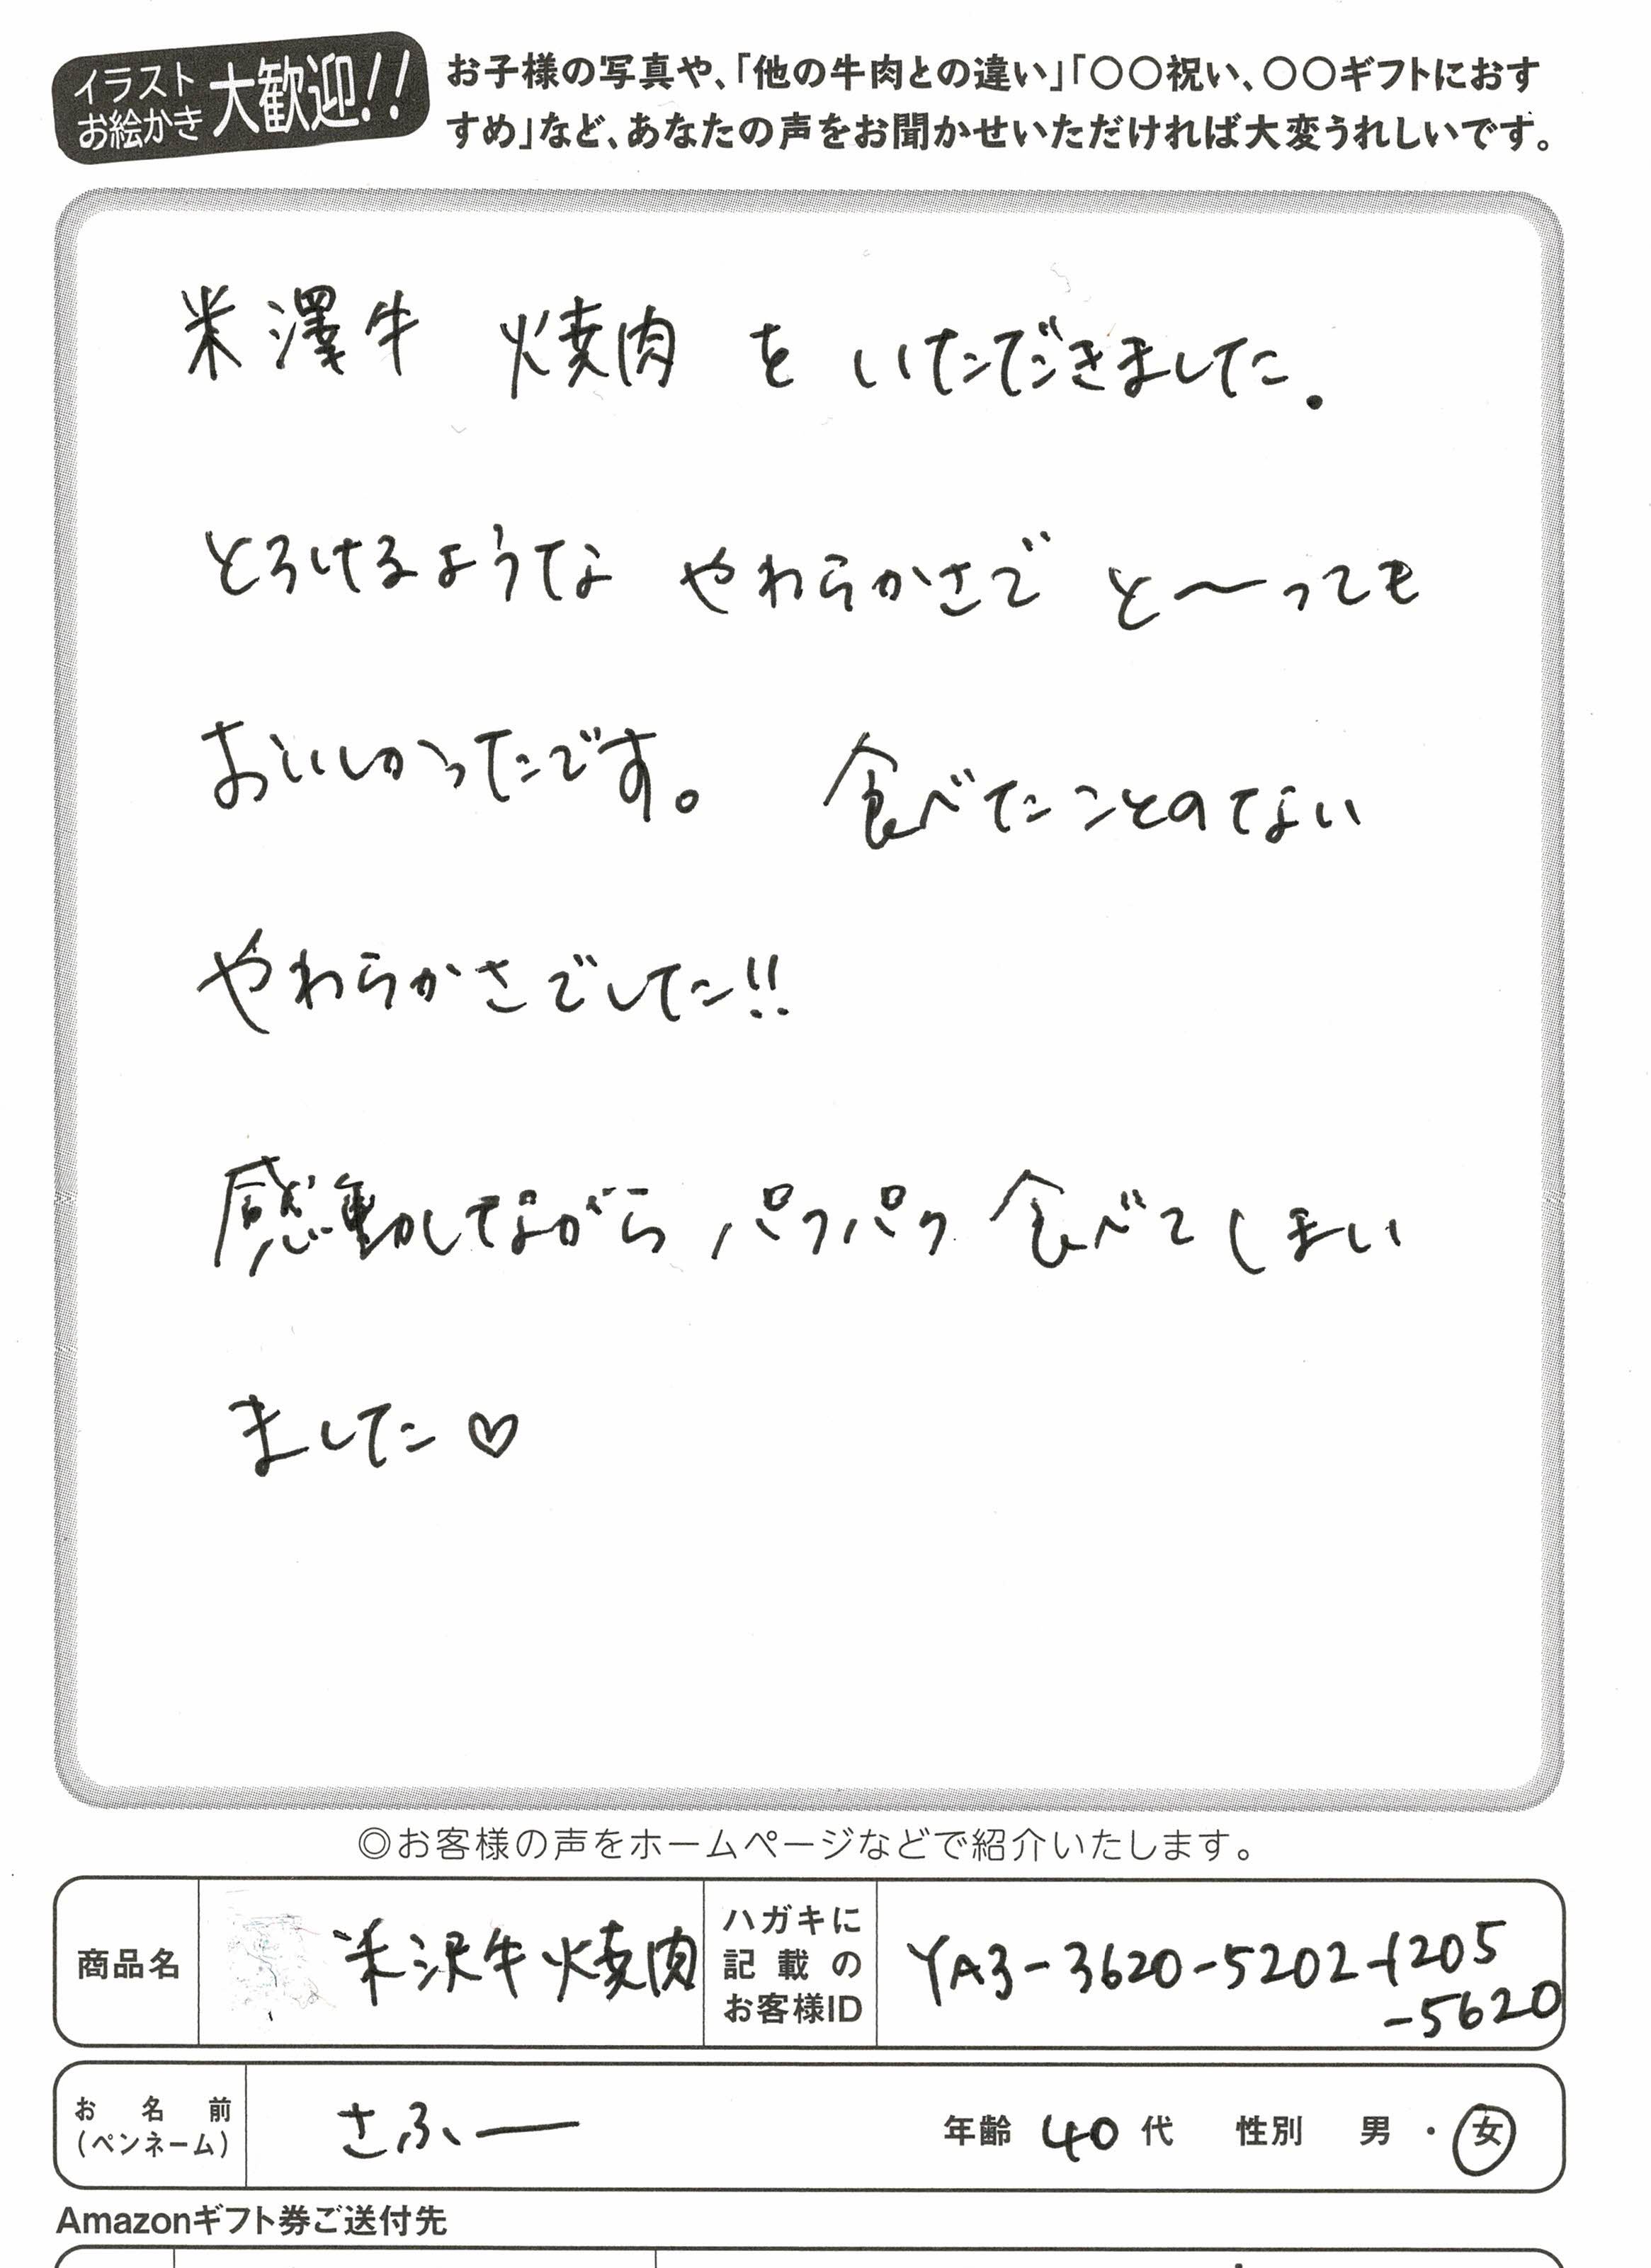 イラスト
お絵かき
大歓迎!!
お子様の写真や、「他の牛肉との違い」「〇〇祝い、〇〇ギフトにおす
すめ」など、あなたの声をお聞かせいただければ大変うれしいです。
米澤牛 焼肉 を いただきました.
とろけるような やわらかさで と〜っても
おいしかったです。 食べたことのない
やわらかさでした!!
感動しながら パクパク 食べてしまい
ました♡
◎お客様の声をホームページなどで紹介いたします。
商品名
米沢牛焼肉
ハガキに
記載の
お客様ID
YA3-3620-5202-1205
-5620
お名前
(ペンネーム)
さふー
年齢 40 代 性別 男 ・ 女
Amazonギフト券ご送付先